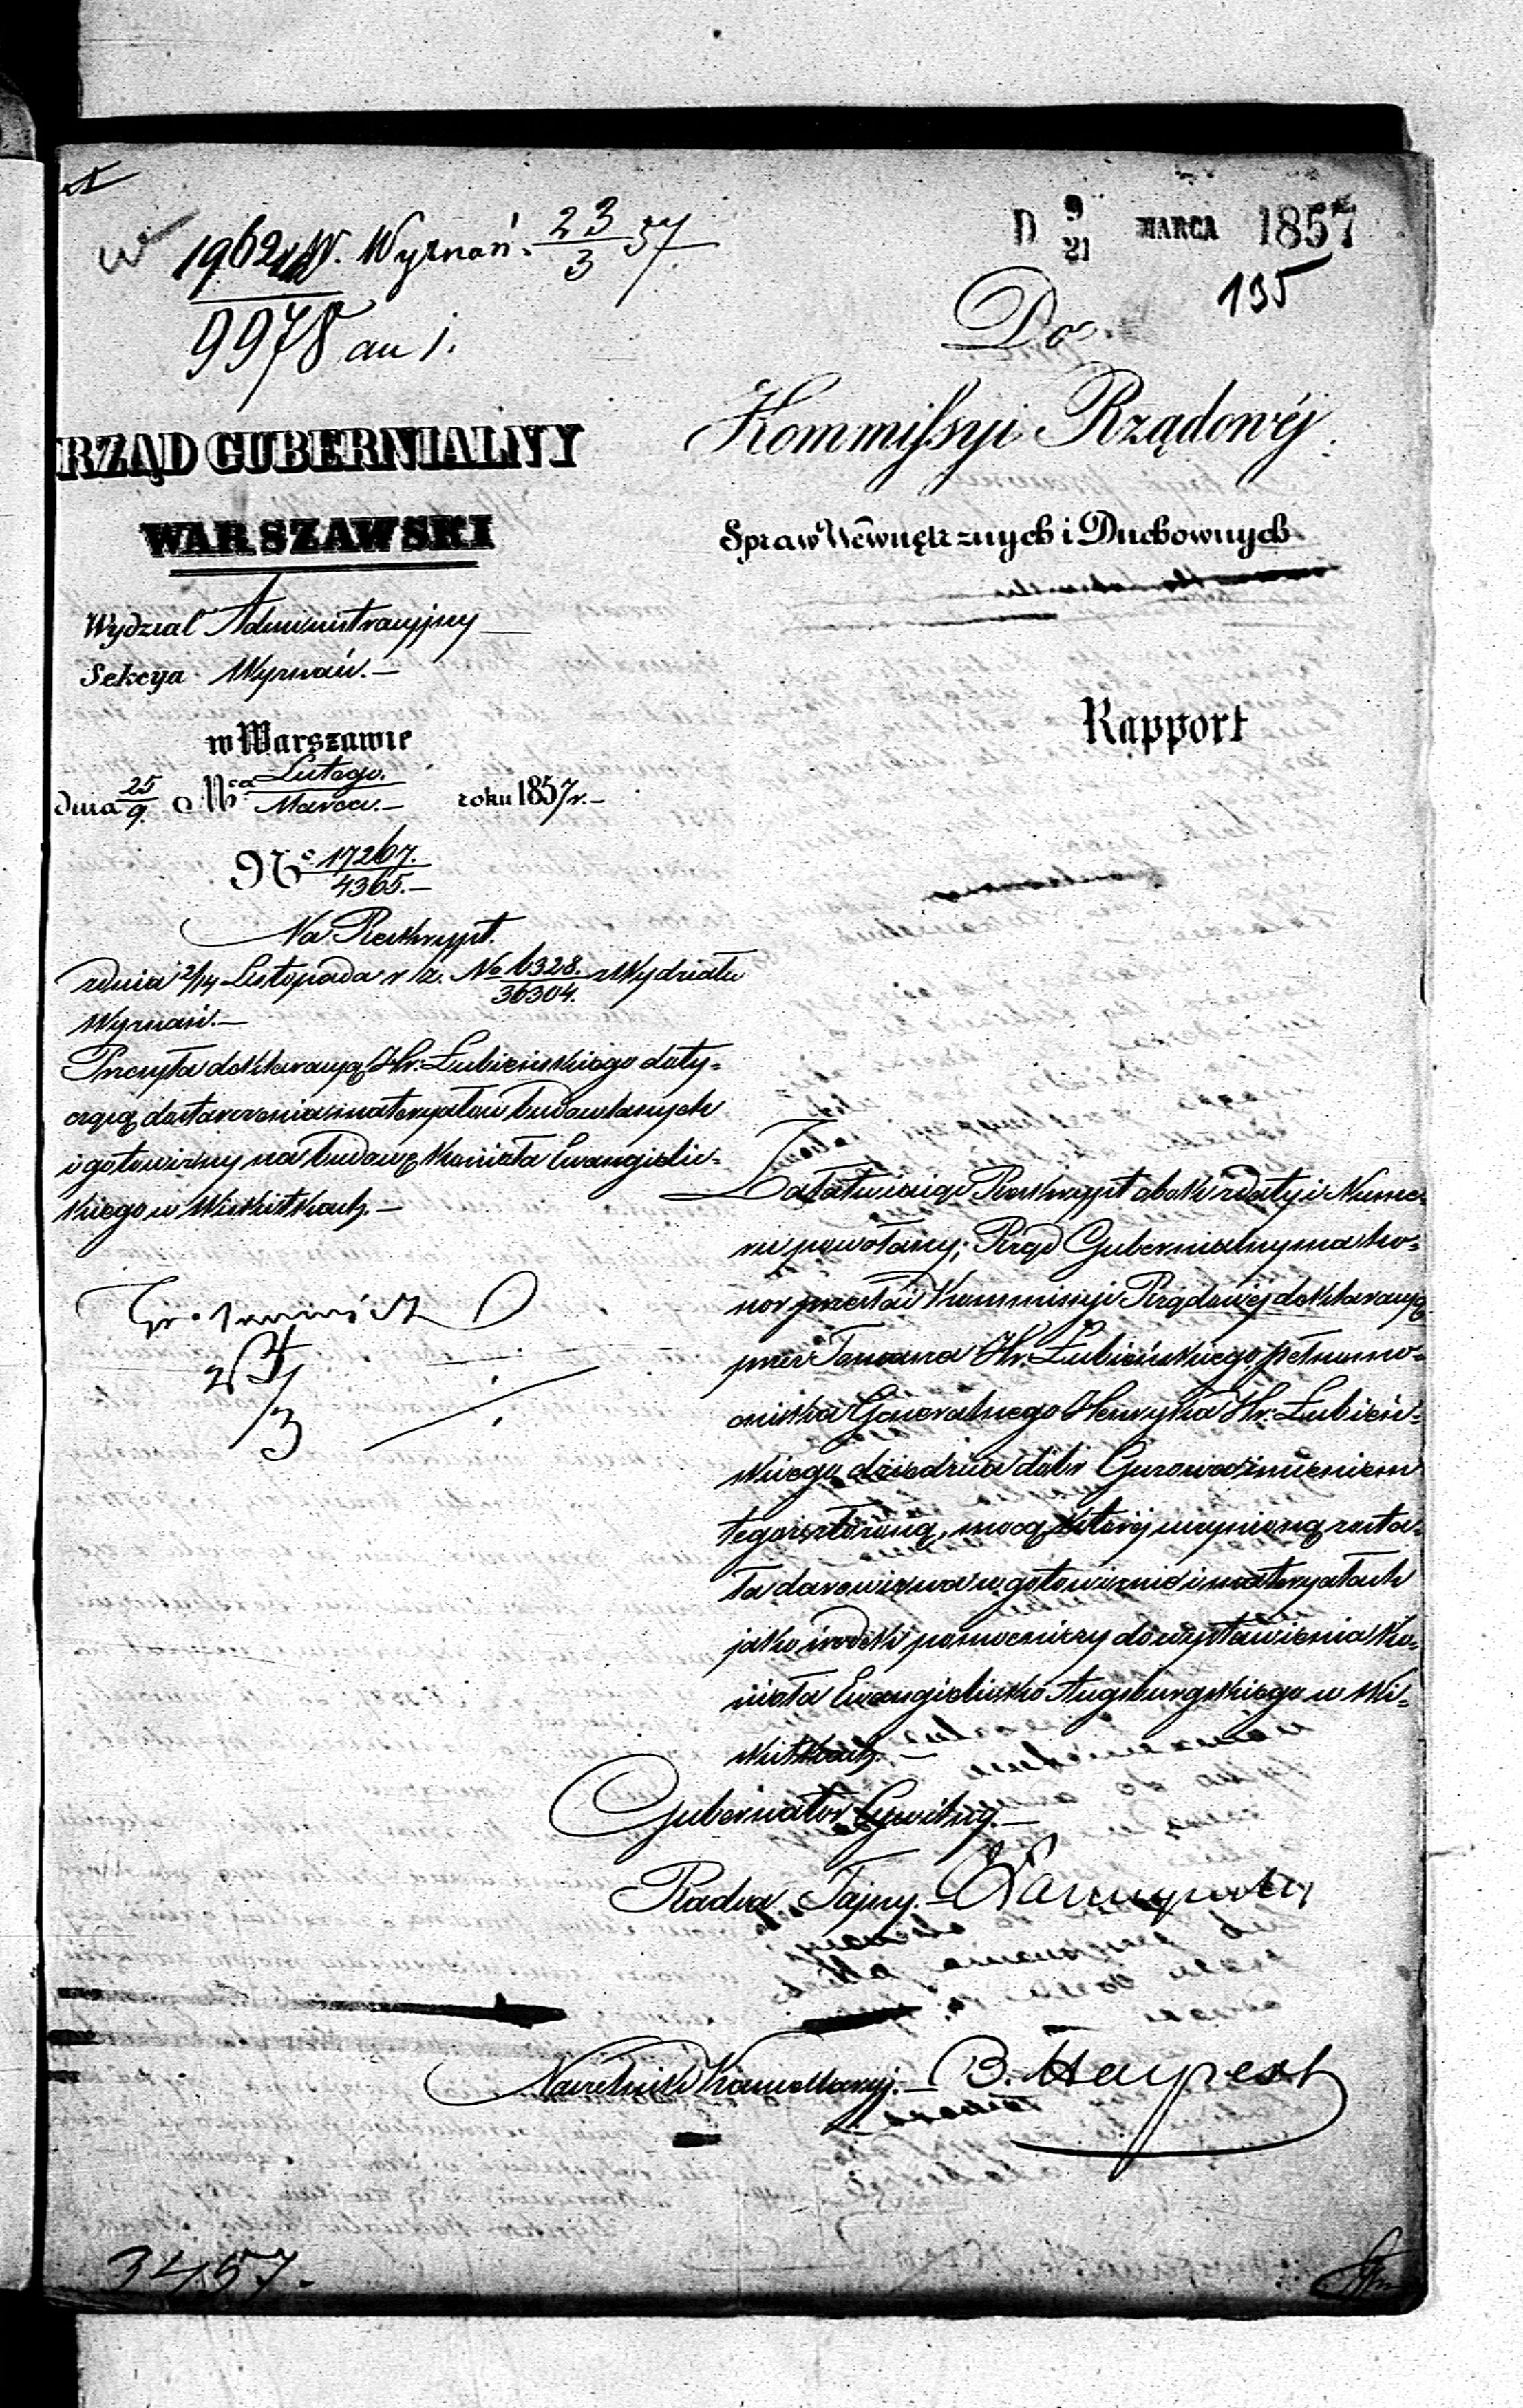 1962 W. Wyznań. 23/3 57
9978 au 1.
D 9/21 MARCA 1857
195
RZĄD GUBERNIALNY
WARSZAWSKI
Wydział Administracyjny
Sekcya Wyznań.—
w Warszawie
dnia 25/9. Mca Lutego./Marca.— roku 1857 r.—
No. 17267./4365.—
Na Reskrypt.
z dnia 2/14 Listopada r. z. No 6328./36304. z Wydziału
Wyznań.—
Przesyła deklaracyą Hr. Łubieńskiego doty=
czącą dostarczenia materyałów budowlanych
i gotowizny na budowę Kościoła Ewangielic=
kiego w Wiskitkach.—
Do
Kommissyi Rządowéj
Spraw Wewnętrznych i Duchownych
Rapport
Załatwiając Reskrypt obok z daty i Nume=
ru powołany; Rząd Gubernialny ma ho=
nor przesłać Kommissyi Rządowéj deklaracyą
przez Tomasza Hr. Łubieńskiego pełnomo=
cnika Generalnego Henryka Hr. Łubień=
skiego dziedzica dóbr Guzowa imieniem
tegoż złożoną, mocą któréj uczynioną zosta=
ła darowizna w gotowiznie i materyałach
jako środek pomocniczy do wystawienia Ko=
ścioła Ewangielicko Augsburgskiego w Wi=
skitkach.—
Gubernator Cywilny.—
Radca Tajny.—
Naczelnik Kancellaryi.— B.
3457.